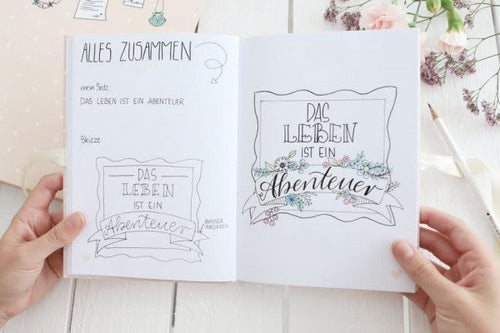 ALLES ZUSAMMEN
mein Satz
DAS LEBEN IST EIN ABENTEUER
Skizze
DAS
LEBEN
IST EIN
Abenteuer
BANNER
DAS
LEBEN
IST EIN
Abenteuer